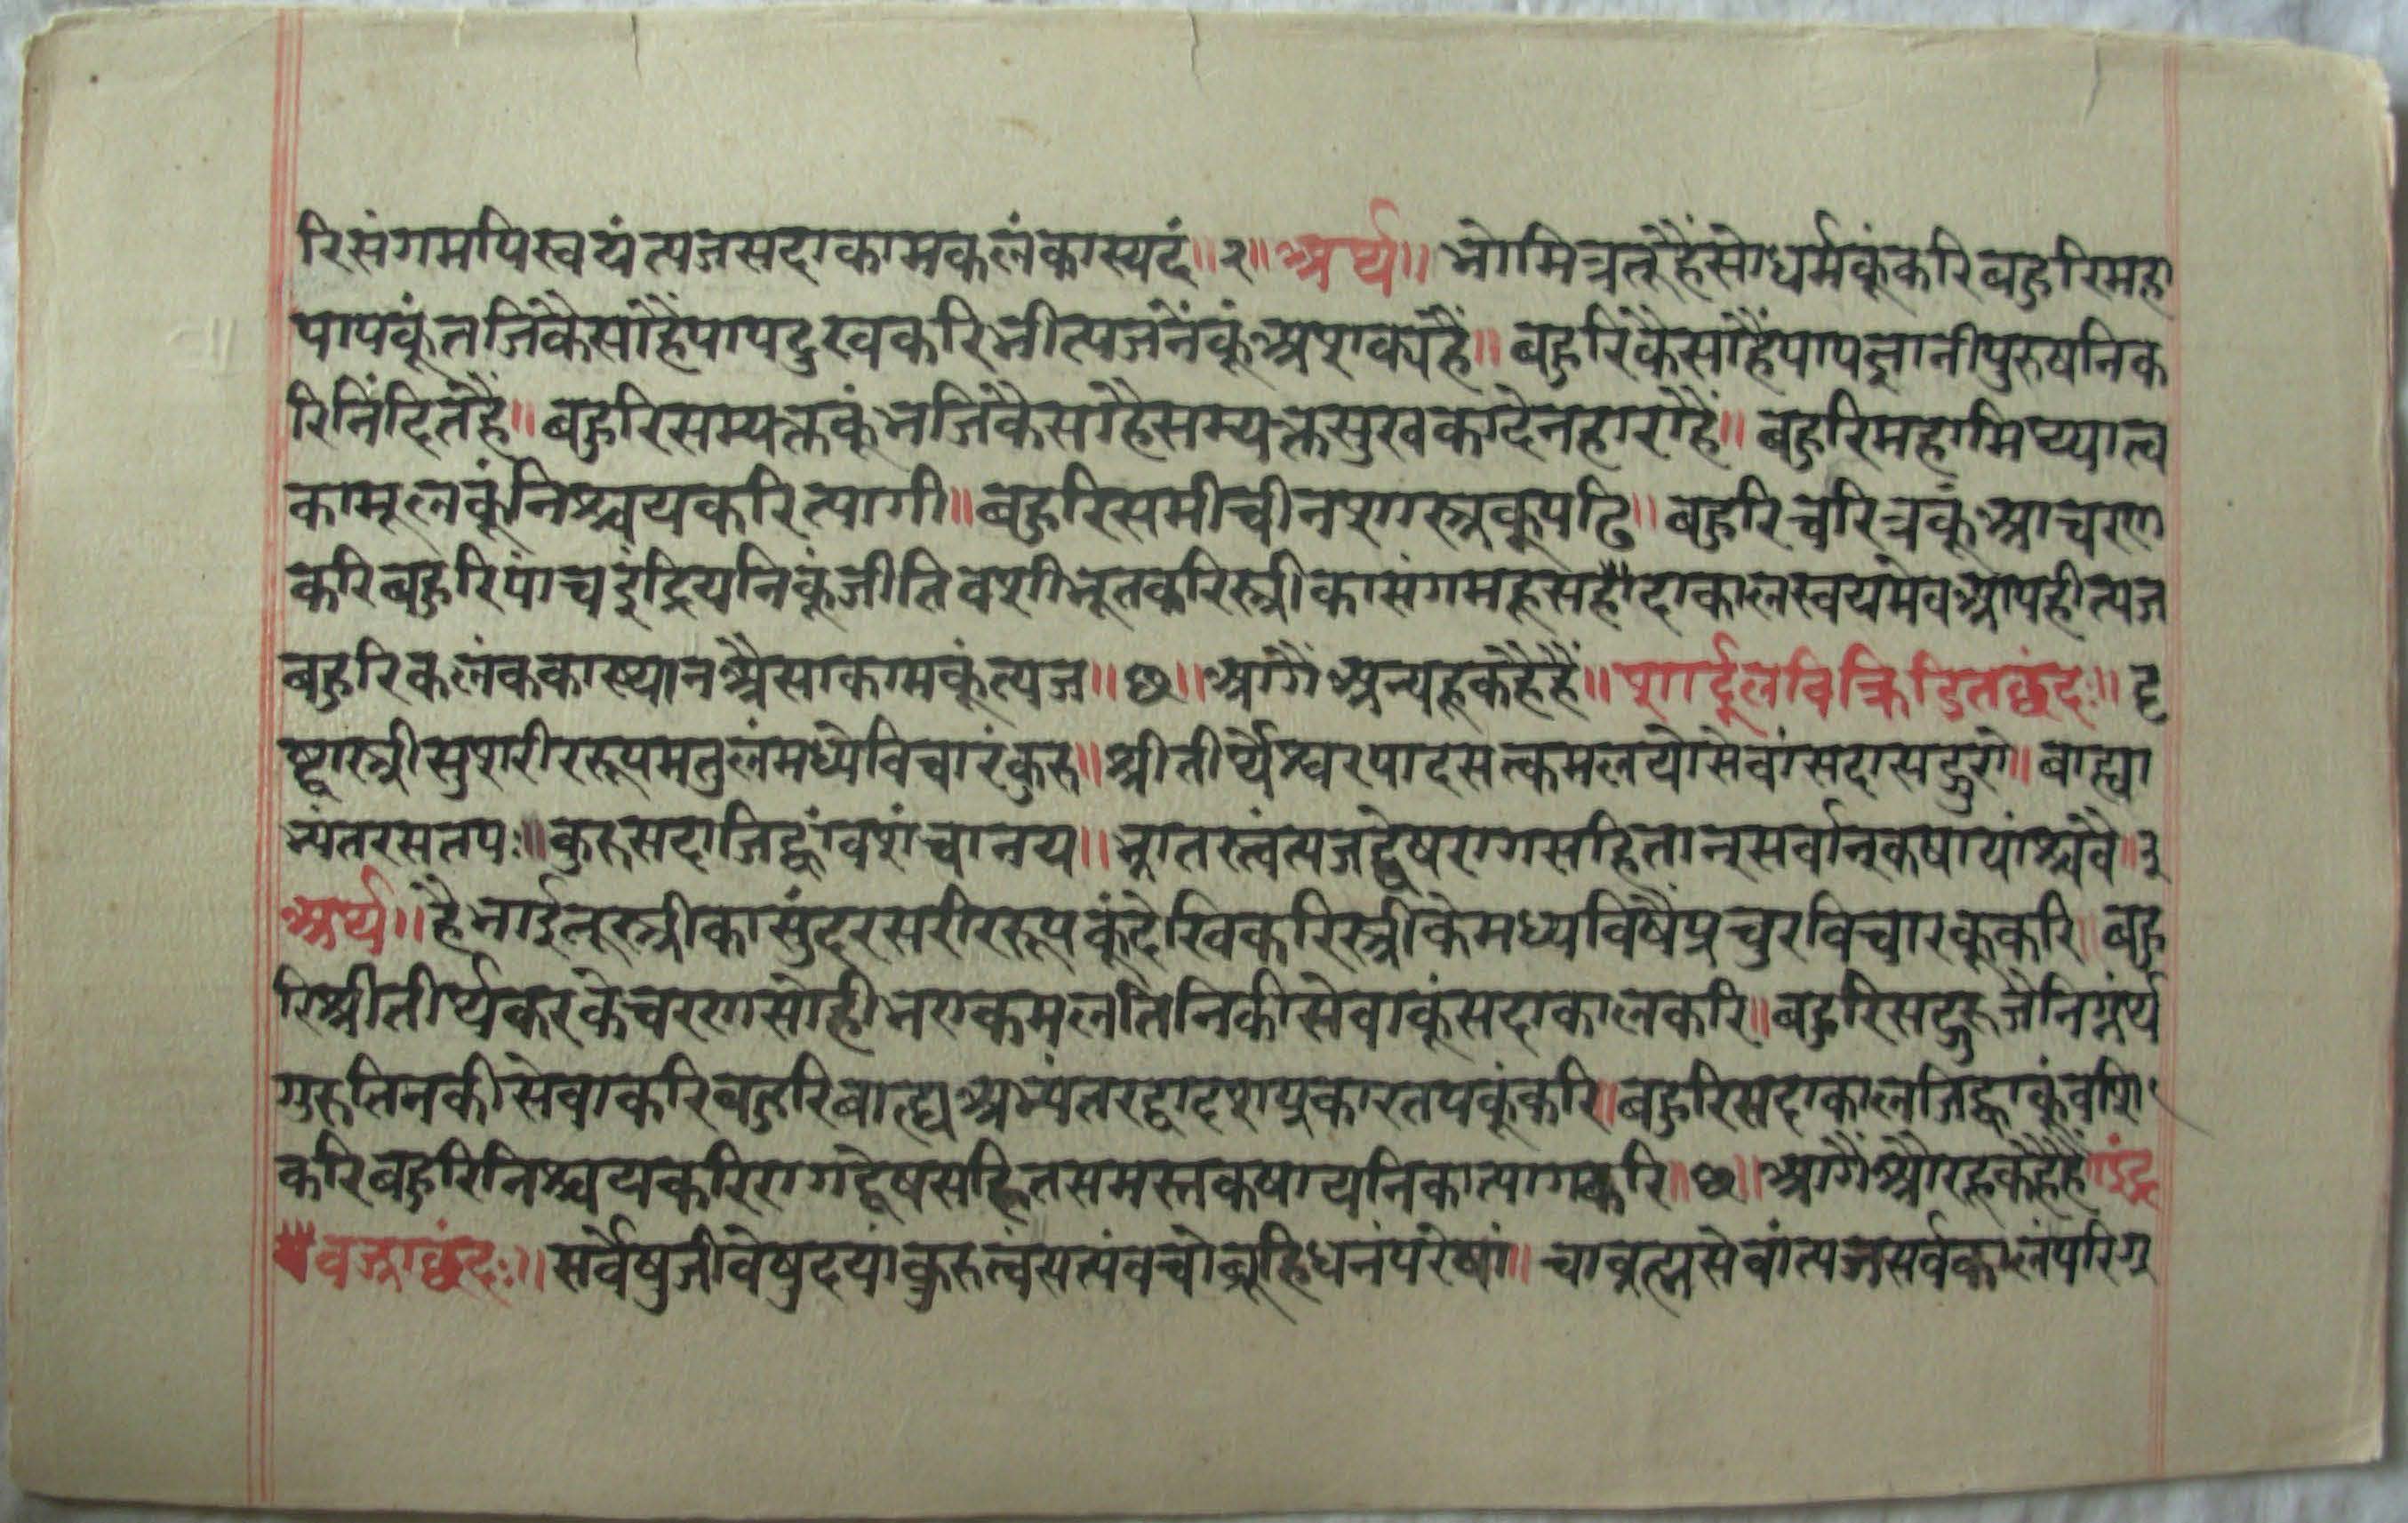 रिसंगमपिस्वयंत्यजसदाकामकलंकास्पदं॥२॥अर्थ॥भोमित्रतूहैसोधर्मकूंकरिबहुरिमहा
पापकूंतजिकैसाहैपापदुखकरिभीत्यजनैंकूंअशक्यहै॥बहुरिकैसाहैपापज्ञानीपुरुषनिक
रिनिंदितहै॥बहुरिसम्यक्तकूंभजिकैसाहैसम्यक्तसुखकादेनहाराहै॥बहुरिमहामिथ्यात्व
कामूलकूंनिश्चयकरित्यागी॥बहुरिसमीचीनशास्त्रकूपढि॥बहुरिचरित्रकूंआचरण
करिबहुरिपांचइंद्रियनिकूंजीतिवशीभूतकरिस्त्रीकासंगमहूसदाकालस्वयंमेवआपहीत्यज
बहुरिकलंककास्थानअैसाकामकूंत्यज॥छ॥आगैंअन्यहूकहैहैं॥शार्दूलविक्रिडितछंदः॥दृ
ष्ट्वास्त्रीसुशरीररूपमतुलंमध्येविचारंकुरु॥श्रीतीर्थेश्वरपादसत्कमलयोसेवांसदासद्गुरो॥बाह्या
भ्यंतरसतपः॥कुरुसदाजिह्वांवशंचानय॥भ्रातस्त्वंत्यजद्वेषरागसहितान्सर्वान्कषायांश्चवै॥३
अर्थ॥हैभाईतूस्त्रीकासुंदरसरीररूपकूंदेखिकरिस्त्रीकेमध्यविषैंप्रचुरविचारकूकरि॥बहु
रिश्रीतीर्थकरकेचरणसोहीभएकमलतिनिकीसेवाकूंसदाकालकरि॥बहुरिसद्गुरूजेनिर्ग्रंथ
गुरुतिनकीसेवाकरिबहुरिबाह्यअभ्यंतरद्वादशप्रकारतपकूंकरि॥बहुरिसदाकालजिह्वाकूंवशि
करिबहुरिनिश्चयकरिरागद्वेषसहितसमस्तकषायनिकात्यागकरि॥छ॥आगैंऔरहूकहैहैं॥इंद्र
वज्राछंदः॥सर्वेषुजीवेषुदयांकुरुत्वंसत्यंवचोब्रूहिधनंपरेषां॥चाब्रह्मसेवांत्यजसर्वकालंपरिग्र